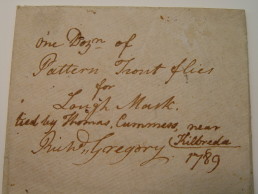 One Dozn of
Pattern Trout flies
for
Lough Mask.
tied by Thomas, Cummess, near
Kilbreda
Richd Gregory
1789